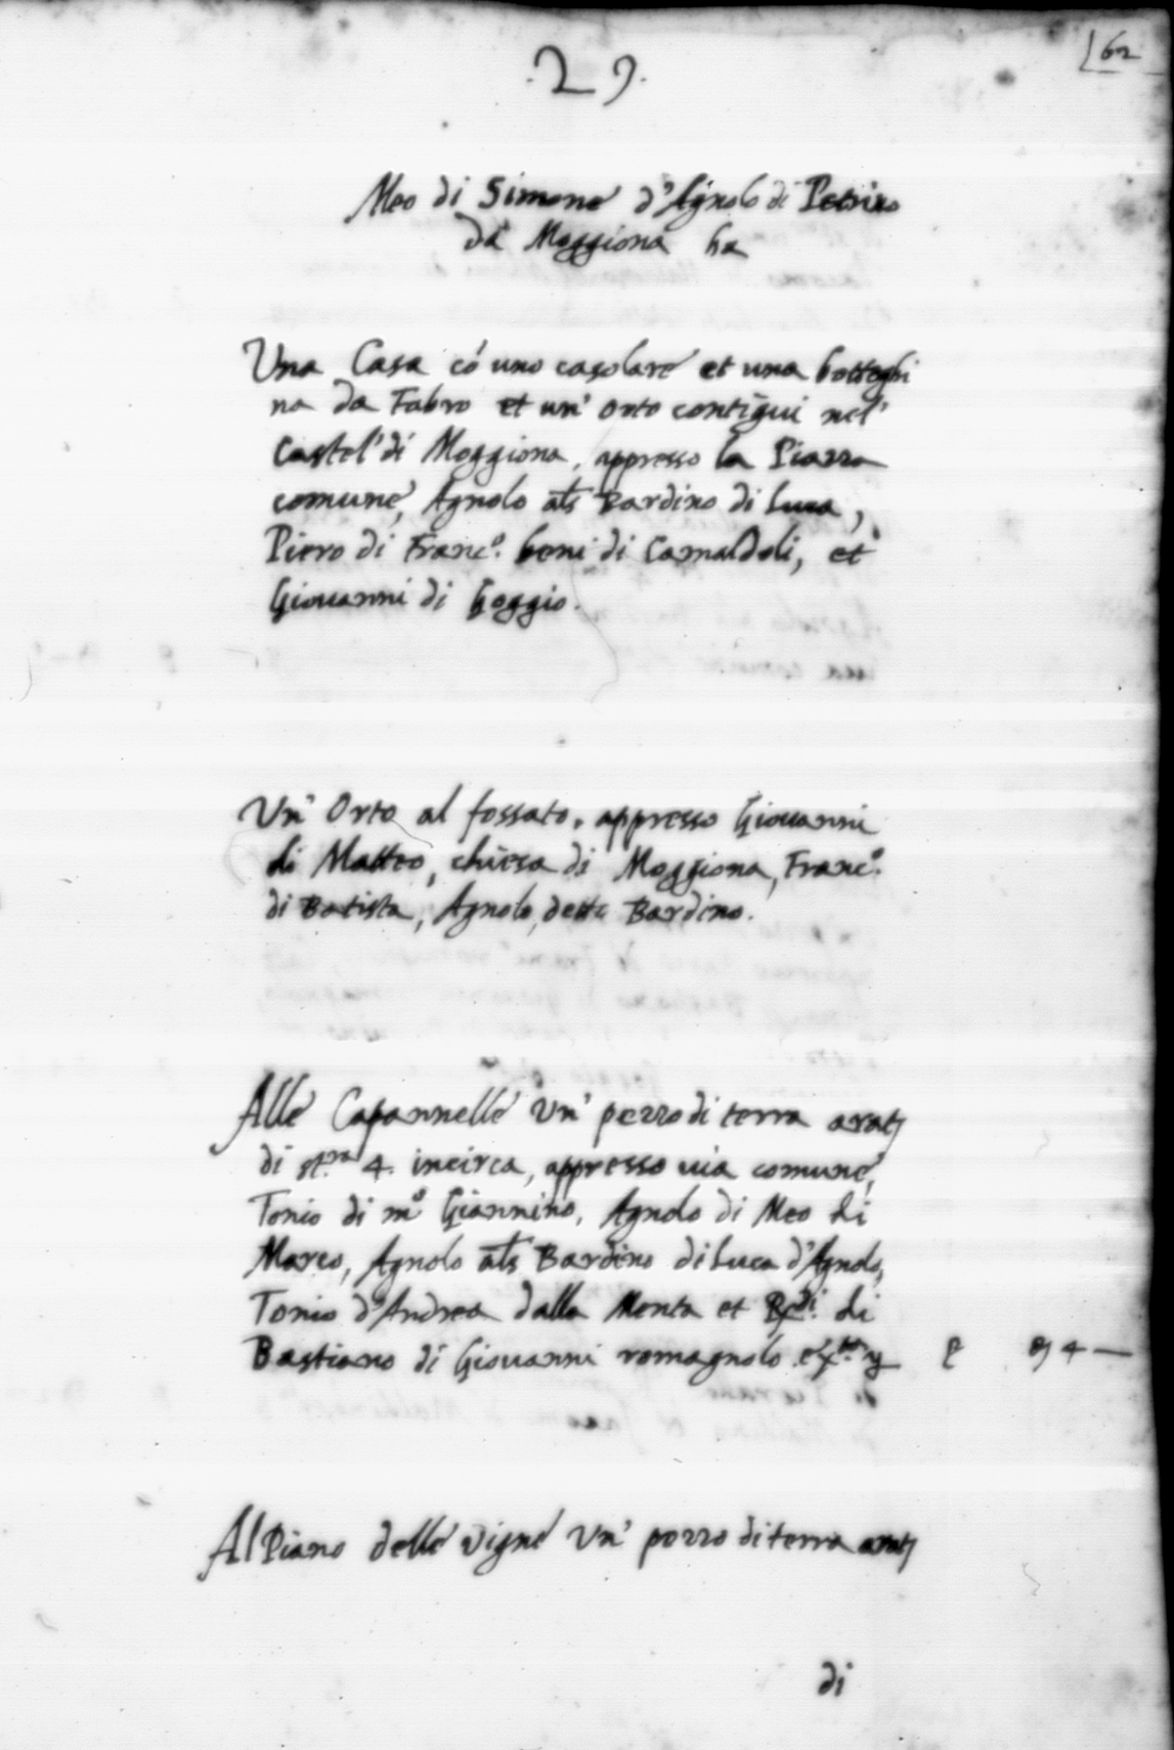 .29.
62
Meo di Simone d'Agnolo di Petrino
da Moggiona ha
Una Casa cō uno casolare et una botteghi
na da Fabro et un' orto contigui nel'
Castel' di Moggiona, appresso la Piazza
comune, Agnolo als Bardino di Luca,
Piero di Franc.º beni di Camaldoli, et
Giouanni di Goggio.
Un' Orto al fossato, appresso Giouanni
di Matteo, chiesa di Moggiona, Franc.º
di Batista, Agnolo detto Bardino.
Alle Capannelle un' pezzo di terra
di st.ra 4. incirca, appresso uia comune,
Tonio di mº Giannino, Agnolo di Meo di
Marco, Agnolo als Bardino di Luca d'Agnolo,
Tonio d'Andrea dalla Monta et di
Bastiano di Giouanni romagnolo 4 —
Al Piano delle vigne un' pezzo di terra
di